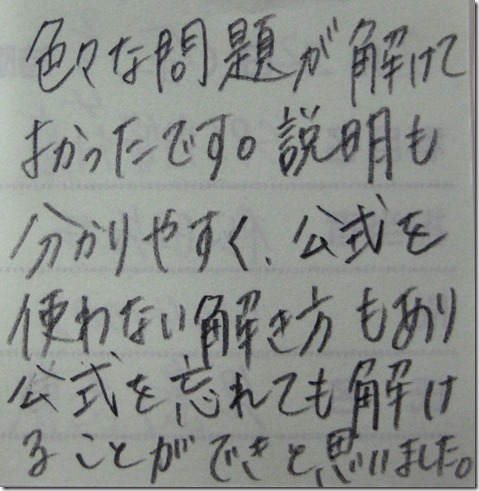 色々な問題が解けて
よかったです。説明も
分かりやすく、公式を
使わない解き方もあり
公式を忘れても解け
ることができと思いました。